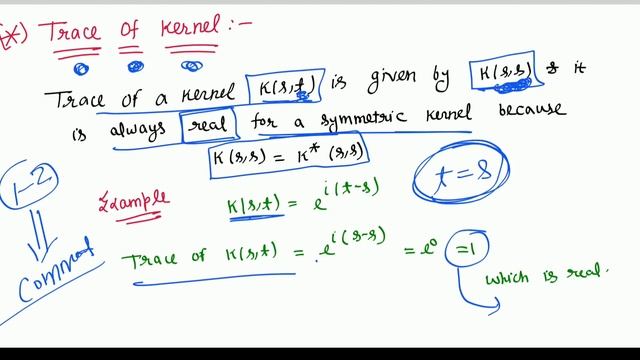 (*) Trace of Kernel :-
Trace of a kernel K(s,t) is given by K(s,s) & it
is always real for a symmetric kernel because
K(s,s) = K*(s,s)
t=s
1-2
Comment
Example K(s,t) = e^i(t-s)
Trace of K(s,t) = e^i(s-s) = e^0 =1
which is real.